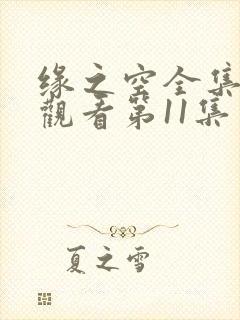 缘之空全集
觀看第11集
夏之雪